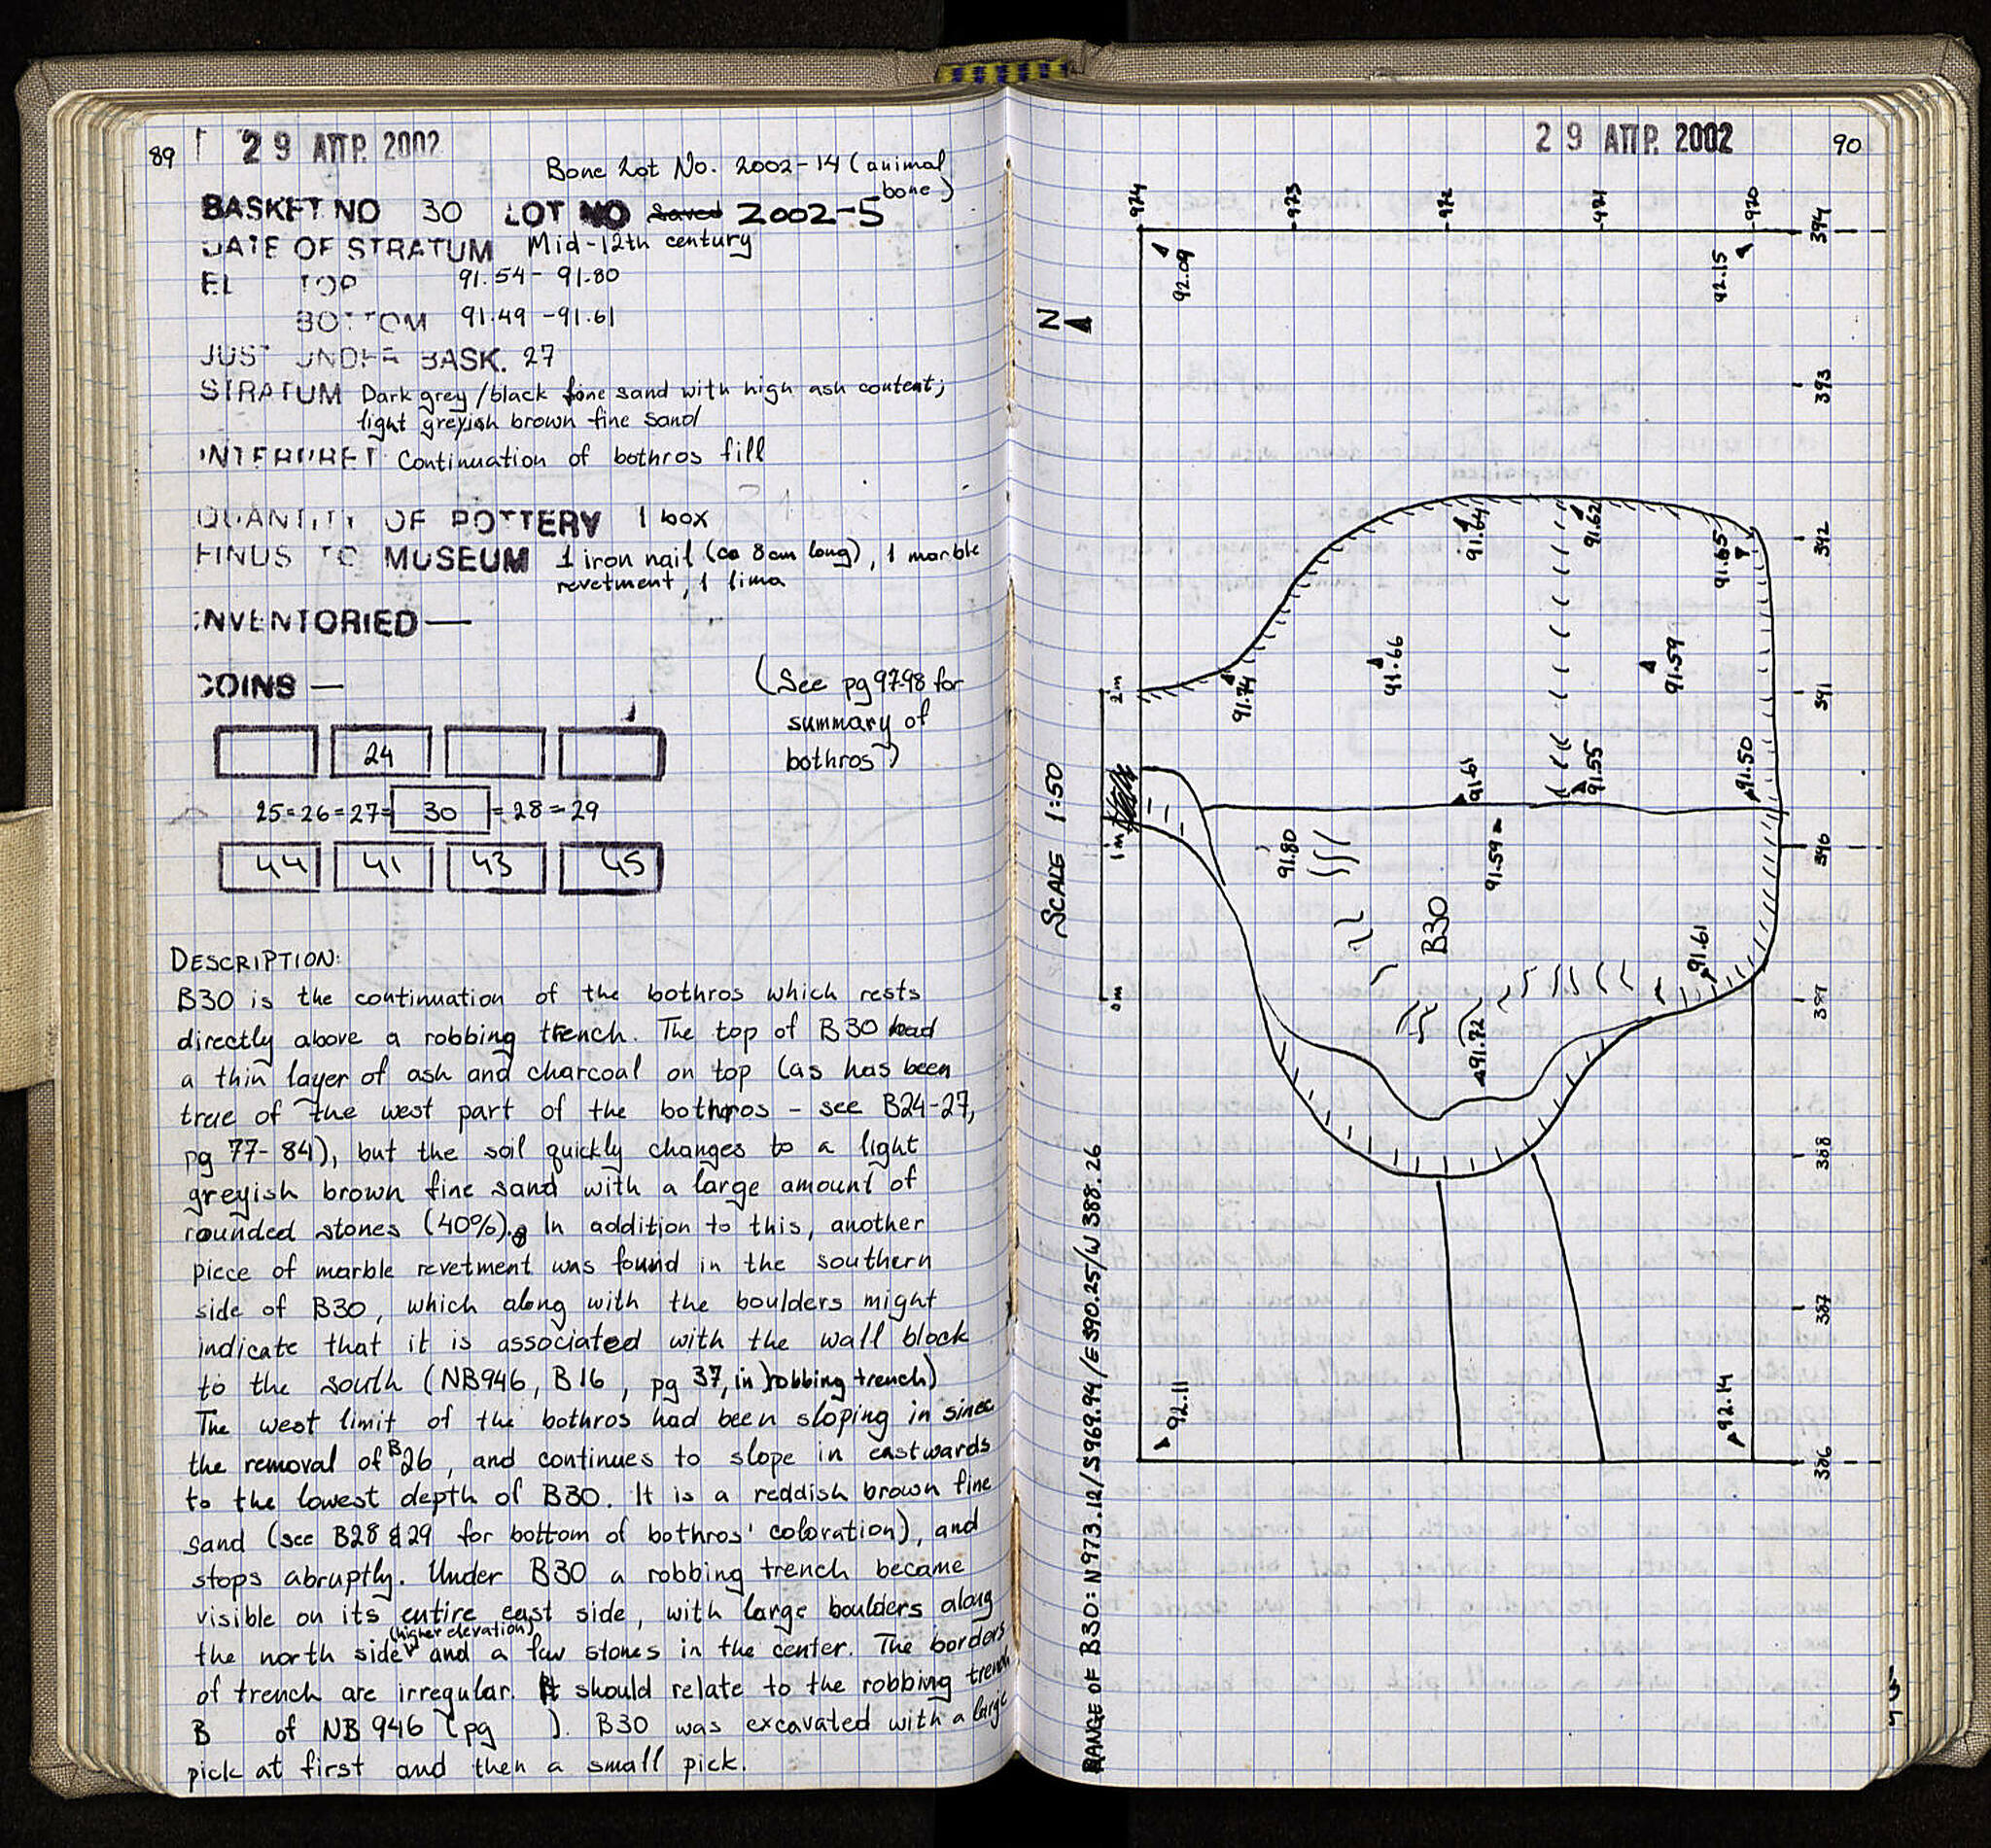 89
29 ΑΠΡ. 2002
Bone Lot No. 2002-14 (animal
bone)
BASKET NO 30 LOT NO saved 2002-5
DATE OF STRATUM Mid-12th century
EL TOP 91.54 - 91.80
BOTTOM 91.49 - 91.61
JUST UNDER BASK. 27
STRATUM Dark grey/black fine sand with high ash content;
light greyish brown fine sand
INTERPRET Continuation of bothros fill
QUANTITY OF POTTERY 1 box
FINDS TO MUSEUM 1 iron nail (ca 8cm long), 1 marble
revetment, 1 lima
INVENTORIED —
COINS —
(See pg 97-98 for
summary of
bothros)
24
25=26=27= 30 =28=29
44 41 43 45
DESCRIPTION:
B30 is the continuation of the bothros which rests
directly above a robbing trench. The top of B30 had
a thin layer of ash and charcoal on top (as has been
true of the west part of the bothros - see B24-27,
pg 77-84), but the soil quickly changes to a light
greyish brown fine sand with a large amount of
rounded stones (40%). In addition to this, another
piece of marble revetment was found in the southern
side of B30, which along with the boulders might
indicate that it is associated with the wall block
to the south (NB946, B16, pg 37, in robbing trench)
The west limit of the bothros had been sloping in since
the removal of B26, and continues to slope in eastwards
to the lowest depth of B30. It is a reddish brown fine
sand (see B28 & 29 for bottom of bothros' coloration), and
stops abruptly. Under B30 a robbing trench became
visible on its entire east side, with large boulders along
the north side (higher elevation) and a few stones in the center. The borders
of trench are irregular. It should relate to the robbing trench
B of NB 946 (pg ). B30 was excavated with a large
pick at first and then a small pick.
29 ΑΠΡ. 2002
90
974
973
972
971
970
394
393
392
391
390
389
388
387
386
N
92.09
92.15
91.64
91.62
91.65
91.74
91.66
91.59
91.61
91.55
91.50
91.80
91.59
B30
91.61
91.72
92.11
92.14
SCALE 1:50
0m
1m
2m
RANGE OF B30: N973.12/S969.94/E390.25/W388.26